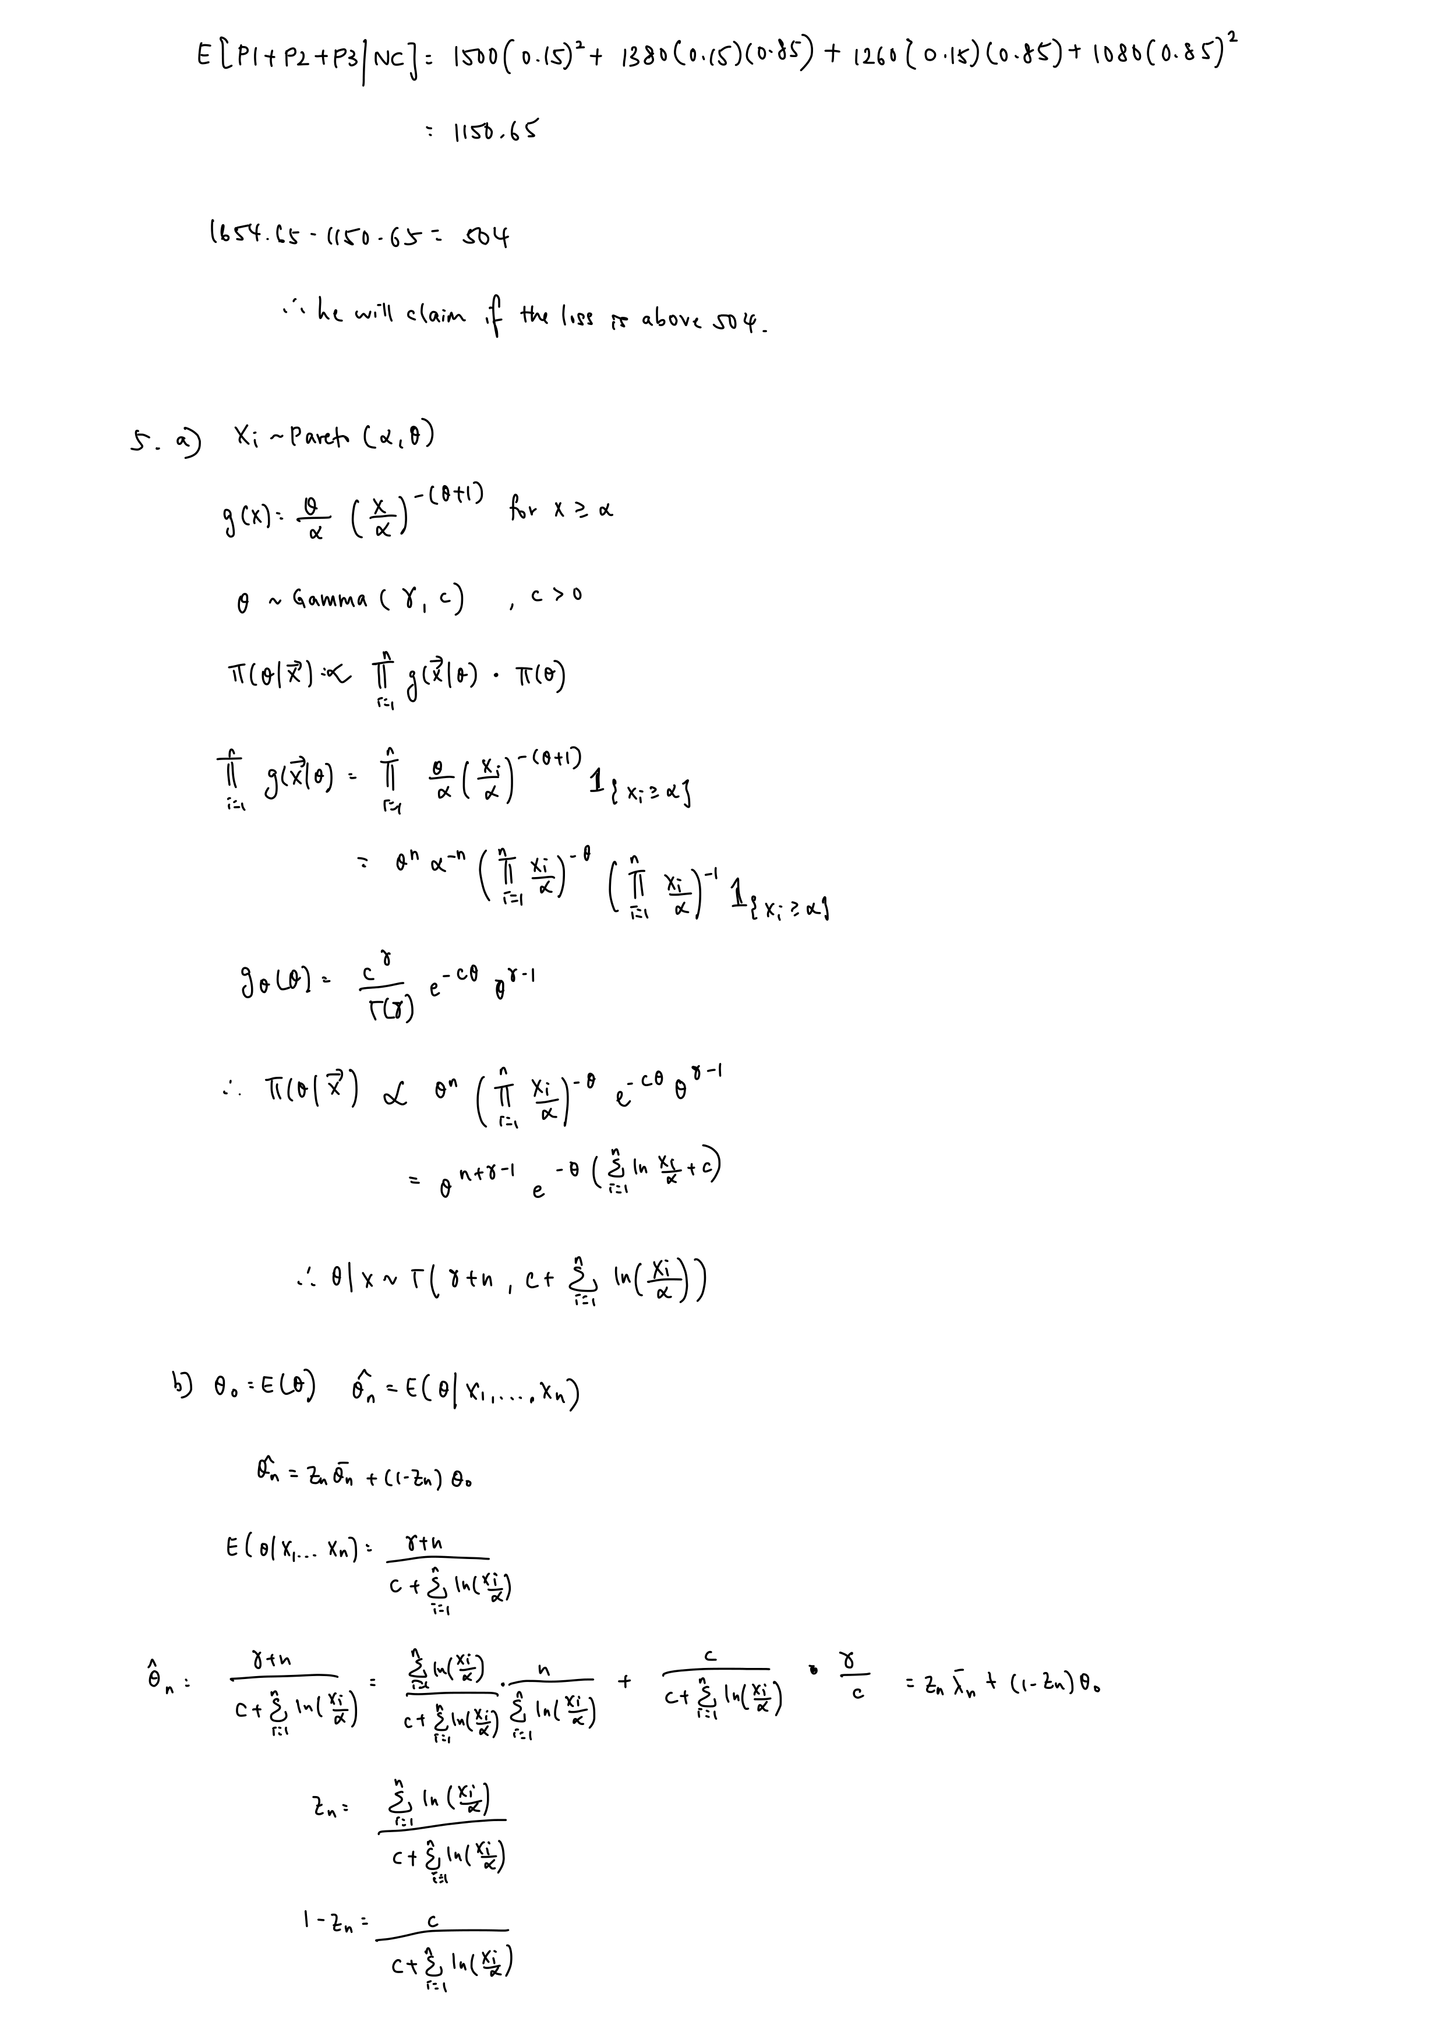 E[P1+P2+P3|NC] = 1500(0.15)² + 1380(0.15)(0.85) + 1260(0.15)(0.85) + 1080(0.85)²
= 1150.65
1654.65 - 1150.65 = 504
∴ he will claim if the loss is above 504.
5. a) Xi ~ Pareto (α, θ)
g(x) = θ/α (x/α)^-(θ+1) for x ≥ α
θ ~ Gamma (γ, c) , c > 0
π(θ|x⃗) ∝ ∏_{i=1}^n g(x⃗|θ) · π(θ)
∏_{i=1}^n g(x⃗|θ) = ∏_{i=1}^n θ/α (xi/α)^-(θ+1) 1_{xi ≥ α}
= θ^n α^-n (∏_{i=1}^n xi/α)^-θ (∏_{i=1}^n xi/α)^-1 1_{xi ≥ α}
g_θ(θ) = c^γ/Γ(γ) e^-cθ θ^γ-1
∴ π(θ|x⃗) ∝ θ^n (∏_{i=1}^n xi/α)^-θ e^-cθ θ^γ-1
= θ^n+γ-1 e^-θ(∑_{i=1}^n ln xi/α + c)
∴ θ|x ~ Γ(γ+n, c + ∑_{i=1}^n ln(xi/α))
b) θ₀ = E(θ) θ̂n = E(θ|X₁,...,Xn)
θ̂n = Zn θ̄n + (1-Zn) θ₀
E(θ|X₁... Xn) = (γ+n)/(c + ∑_{i=1}^n ln(xi/α))
θ̂n = (γ+n)/(c + ∑_{i=1}^n ln(xi/α)) = (∑_{i=1}^n ln(xi/α))/(c + ∑_{i=1}^n ln(xi/α)) · n/(∑_{i=1}^n ln(xi/α)) + c/(c + ∑_{i=1}^n ln(xi/α)) · γ/c = Zn X̄n + (1-Zn) θ₀
Zn = (∑_{i=1}^n ln(xi/α))/(c + ∑_{i=1}^n ln(xi/α))
1 - Zn = c/(c + ∑_{i=1}^n ln(xi/α))